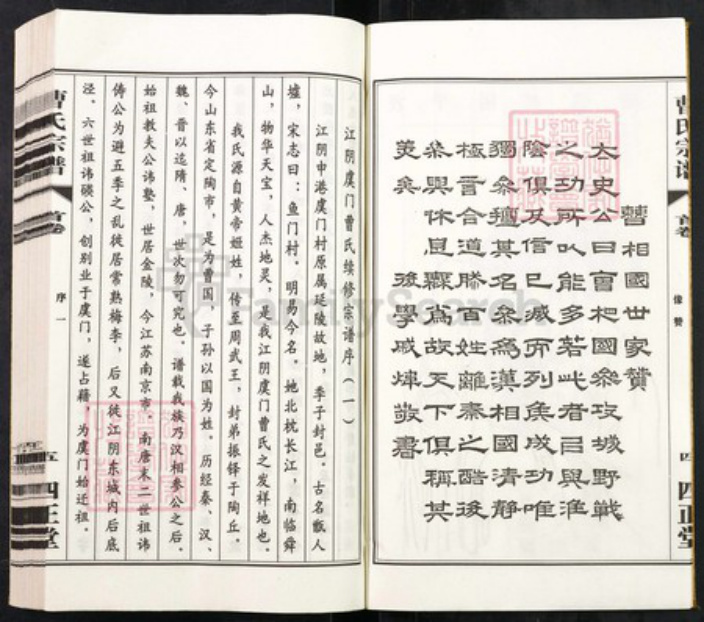 曹氏宗谱 首卷 像赞 四 四正堂
曹相國世家贊
太史公曰曹相國參攻城野戰
之功所以能多若此者以與淮
陰俱及信已滅而列侯成功唯
獨參擅其名參為漢相國清静
極言合道然百姓離秦之酷後
參與休息無為故天下俱稱其
美矣 後學戚煒敬書
江阴虞门曹氏续修宗谱序（一）
江阴申港虞门村原属延陵故地，季子封邑。古名甑人
墟，宋志曰：鱼门村。明易今名。她北枕长江，南临舜
山，物华天宝，人杰地灵，是我江阴虞门曹氏之发祥地也。
我氏源自黄帝姬姓，传至周武王，封弟振铎于陶丘。
今山东省定陶市，是为曹国，子孙以国为姓。历经秦、汉、
魏、晋以迄隋、唐，世次勿可究也。谱载我族乃汉相参公之后。
始祖教夫公讳塾，世居金陵，今江苏南京市。南唐末二世祖讳
俦公为避五季之乱徙居常熟梅李，后又徙江阴东城内后底
泾。六世祖讳碤公，创别业于虞门，遂占籍，为虞门始迁祖。
曹氏宗谱 首卷 序一 五 四正堂
FamilySearch